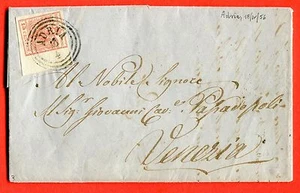 Adria, 18/2/56
ADRIA
Al Nobile Signore
Al Sig.r Giovanni Cav.e Papadopoli
Venezia